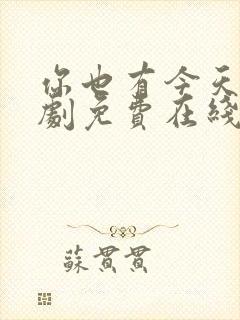 你也有今天
劇免費在綫
蘇貫貫